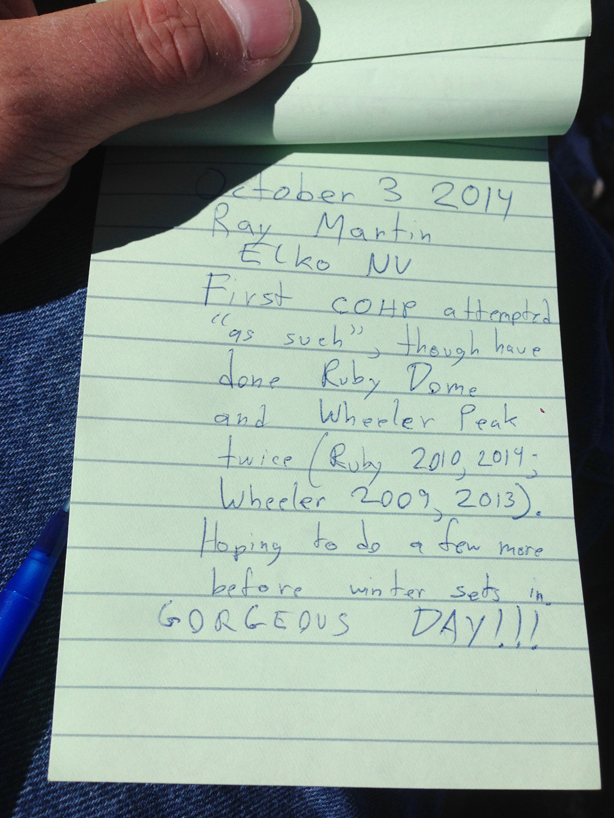 October 3 2014
Ray Martin
Elko NV
First COHP attempted
"as such", though have
done Ruby Dome
and Wheeler Peak
twice (Ruby 2010, 2014;
Wheeler 2009, 2013).
Hoping to do a few more
before winter sets in.
GORGEOUS DAY!!!